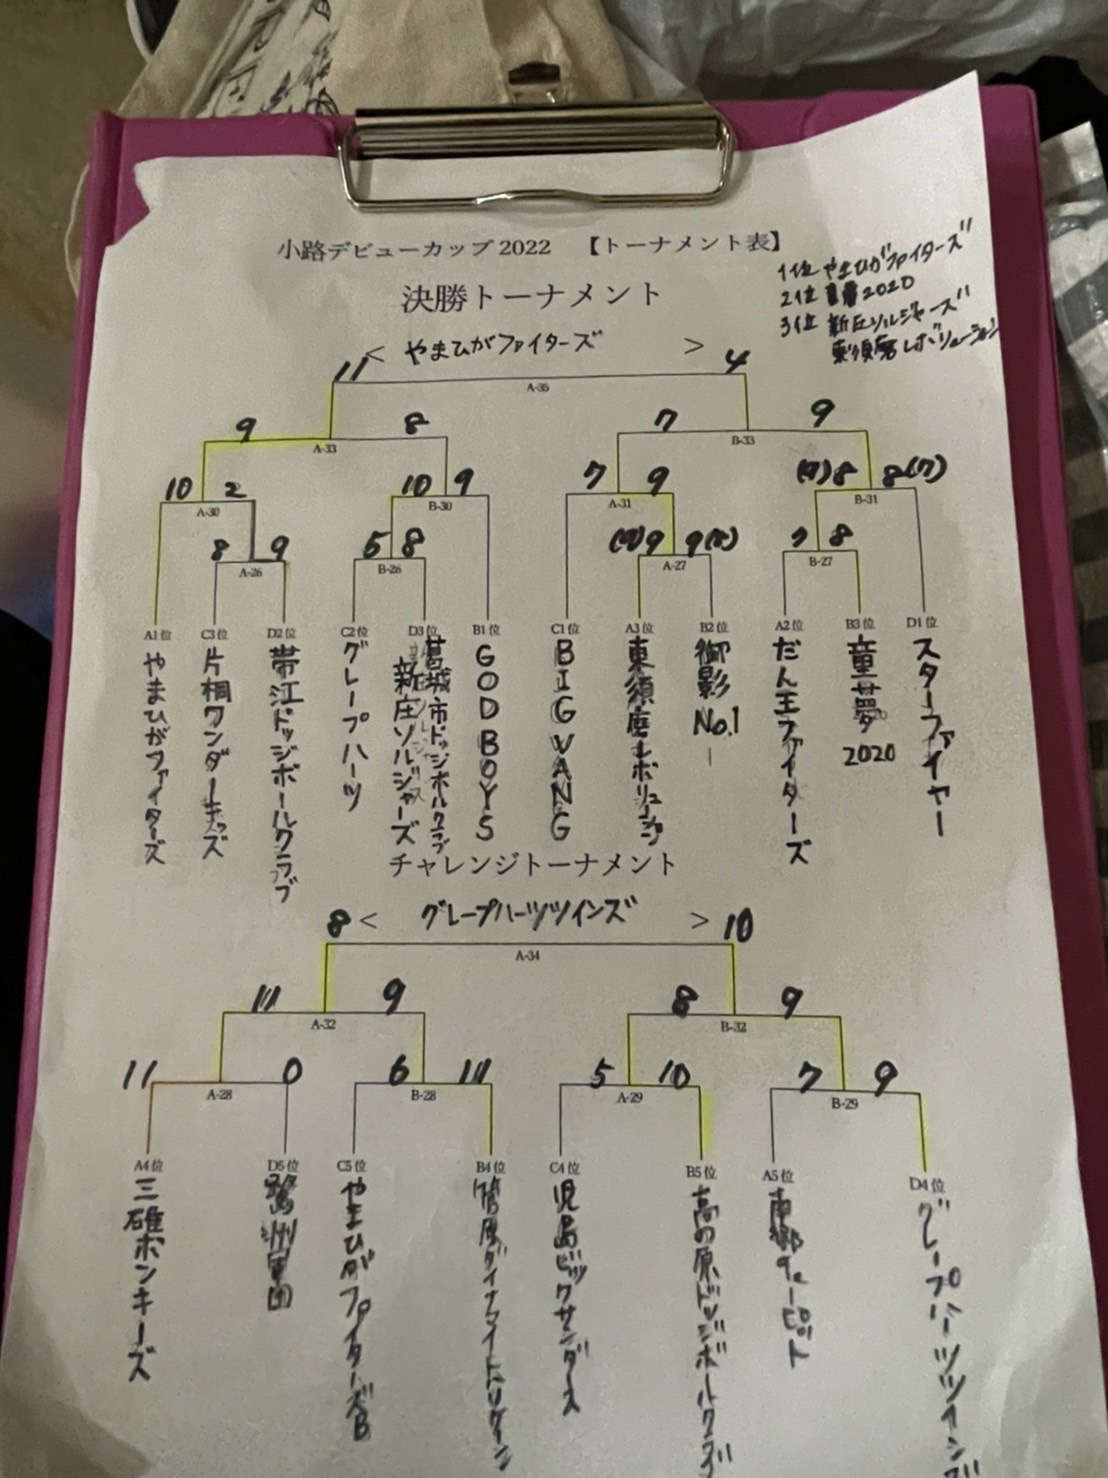 小路デビューカップ 2022 【トーナメント表】
決勝トーナメント
1位 やまひがファイターズ
2位 童夢2020
3位 新庄ソルジャーズ
東須磨レボリューション
< やまひがファイターズ >
11 4
A-35
9 8 7 9
A-33 B-33
10 2 10 9 7 9 (7)8 8(7)
A-30 B-30 A-31 B-31
8 9 5 8 9 9 7 8
A-26 B-26 A-27 B-27
A1位 C3位 D2位 C2位 D3位 B1位 C1位 A3位 B2位 A2位 B3位 D1位
やまひがファイターズ
片桐ワンダーキッズ
帯江ドッジボールクラブ
グレープハーツ
新庄ソルジャーズ
葛城市ドッジボールクラブ
GOD BOYS
BIG VANG
東須磨レボリューション
御影No.1
だん王ファイターズ
童夢2020
スターファイヤー
チャレンジトーナメント
8 < グレープハーツツインズ > 10
A-34
11 9 8 9
A-32 B-32
11 0 6 11 5 10 7 9
A-28 B-28 A-29 B-29
A4位 D5位 C5位 B4位 C4位 B5位 A5位 D4位
三碓ポンキーズ
鷺洲軍団
やまひがファイターズB
児島ビックサンダース
高の原ドッジボールクラブ
グレープハーツツインズ